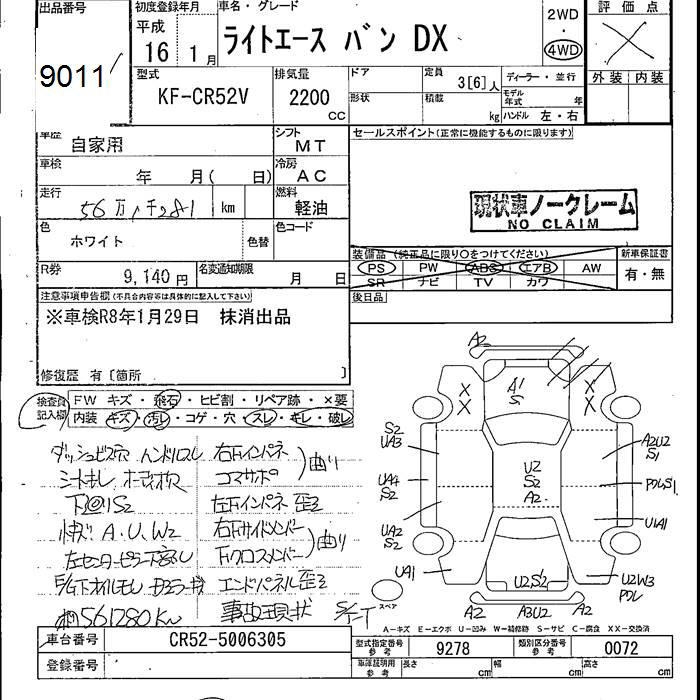 出品番号
9011
初度登録年月
平成
16年1月
車名・グレード
ライトエース バン DX
2WD
・
4WD
評価点
外装 内装
型式
KF-CR52V
排気量
2200
CC
ドア
定員
3[6]人
形状
積載
kg
ディーラー・並行
モデル年式
年
ハンドル 左・右
車歴
自家用
シフト
MT
車検
年 月( 日)
冷房
AC
走行
km
燃料
軽油
色
ホワイト
色替
色コード
R券
9,140円
名変通知期限
月 日
セールスポイント(正常に機能するものに限ります)
現状車ノークレーム
NO CLAIM
装備品 (純正品に限り○をつけてください)
PS PW ABS エアB AW
SR ナビ TV カワ
新車保証書
有・無
後日品
注意事項申告欄(不具合内容等は具体的に記入して下さい)
※車検R8年1月29日 抹消出品
修復歴 有〔箇所 〕
検査員記入欄
FW キズ・飛石・ヒビ割・リペア跡・×要
内装 キズ・汚レ・コゲ・穴・スレ・キレ・破レ
ダッシュビス穴 ハンドルスレ
右Fインパネ
コアサポ
曲り
左Fインパネ 歪ミ
右Fサイドメンバー
Fクロスメンバー
曲り
エンドパネル歪ミ
事故現状
A2
A1
S
S2
UA3
UA4
S2
UA2
S2
UA1
U2
S2
A2
A2U2
S1
U1A1
U2W3
U2S2
A2
A3U2
A2
スペア
A-キズ E-エクボ U-凹み W-補修跡 S-サビ C-腐食 XX-交換済
車台番号
CR52-5006305
登録番号
型式指定番号
参考
9278
類別区分番号
参考
0072
車庫証明用
参考
長さ cm
幅 cm
高さ cm